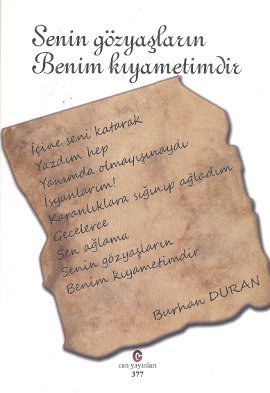 Senin gözyaşların
Benim kıyametimdir
İçine seni katarak
Yazdım hep
Yanımda olmayışınaydı
İsyanlarım!
Karanlıklara sığınıp ağladım
Gecelerce
Sen ağlama
Senin gözyaşların
Benim kıyametimdir
Burhan DURAN
can yayınları
377